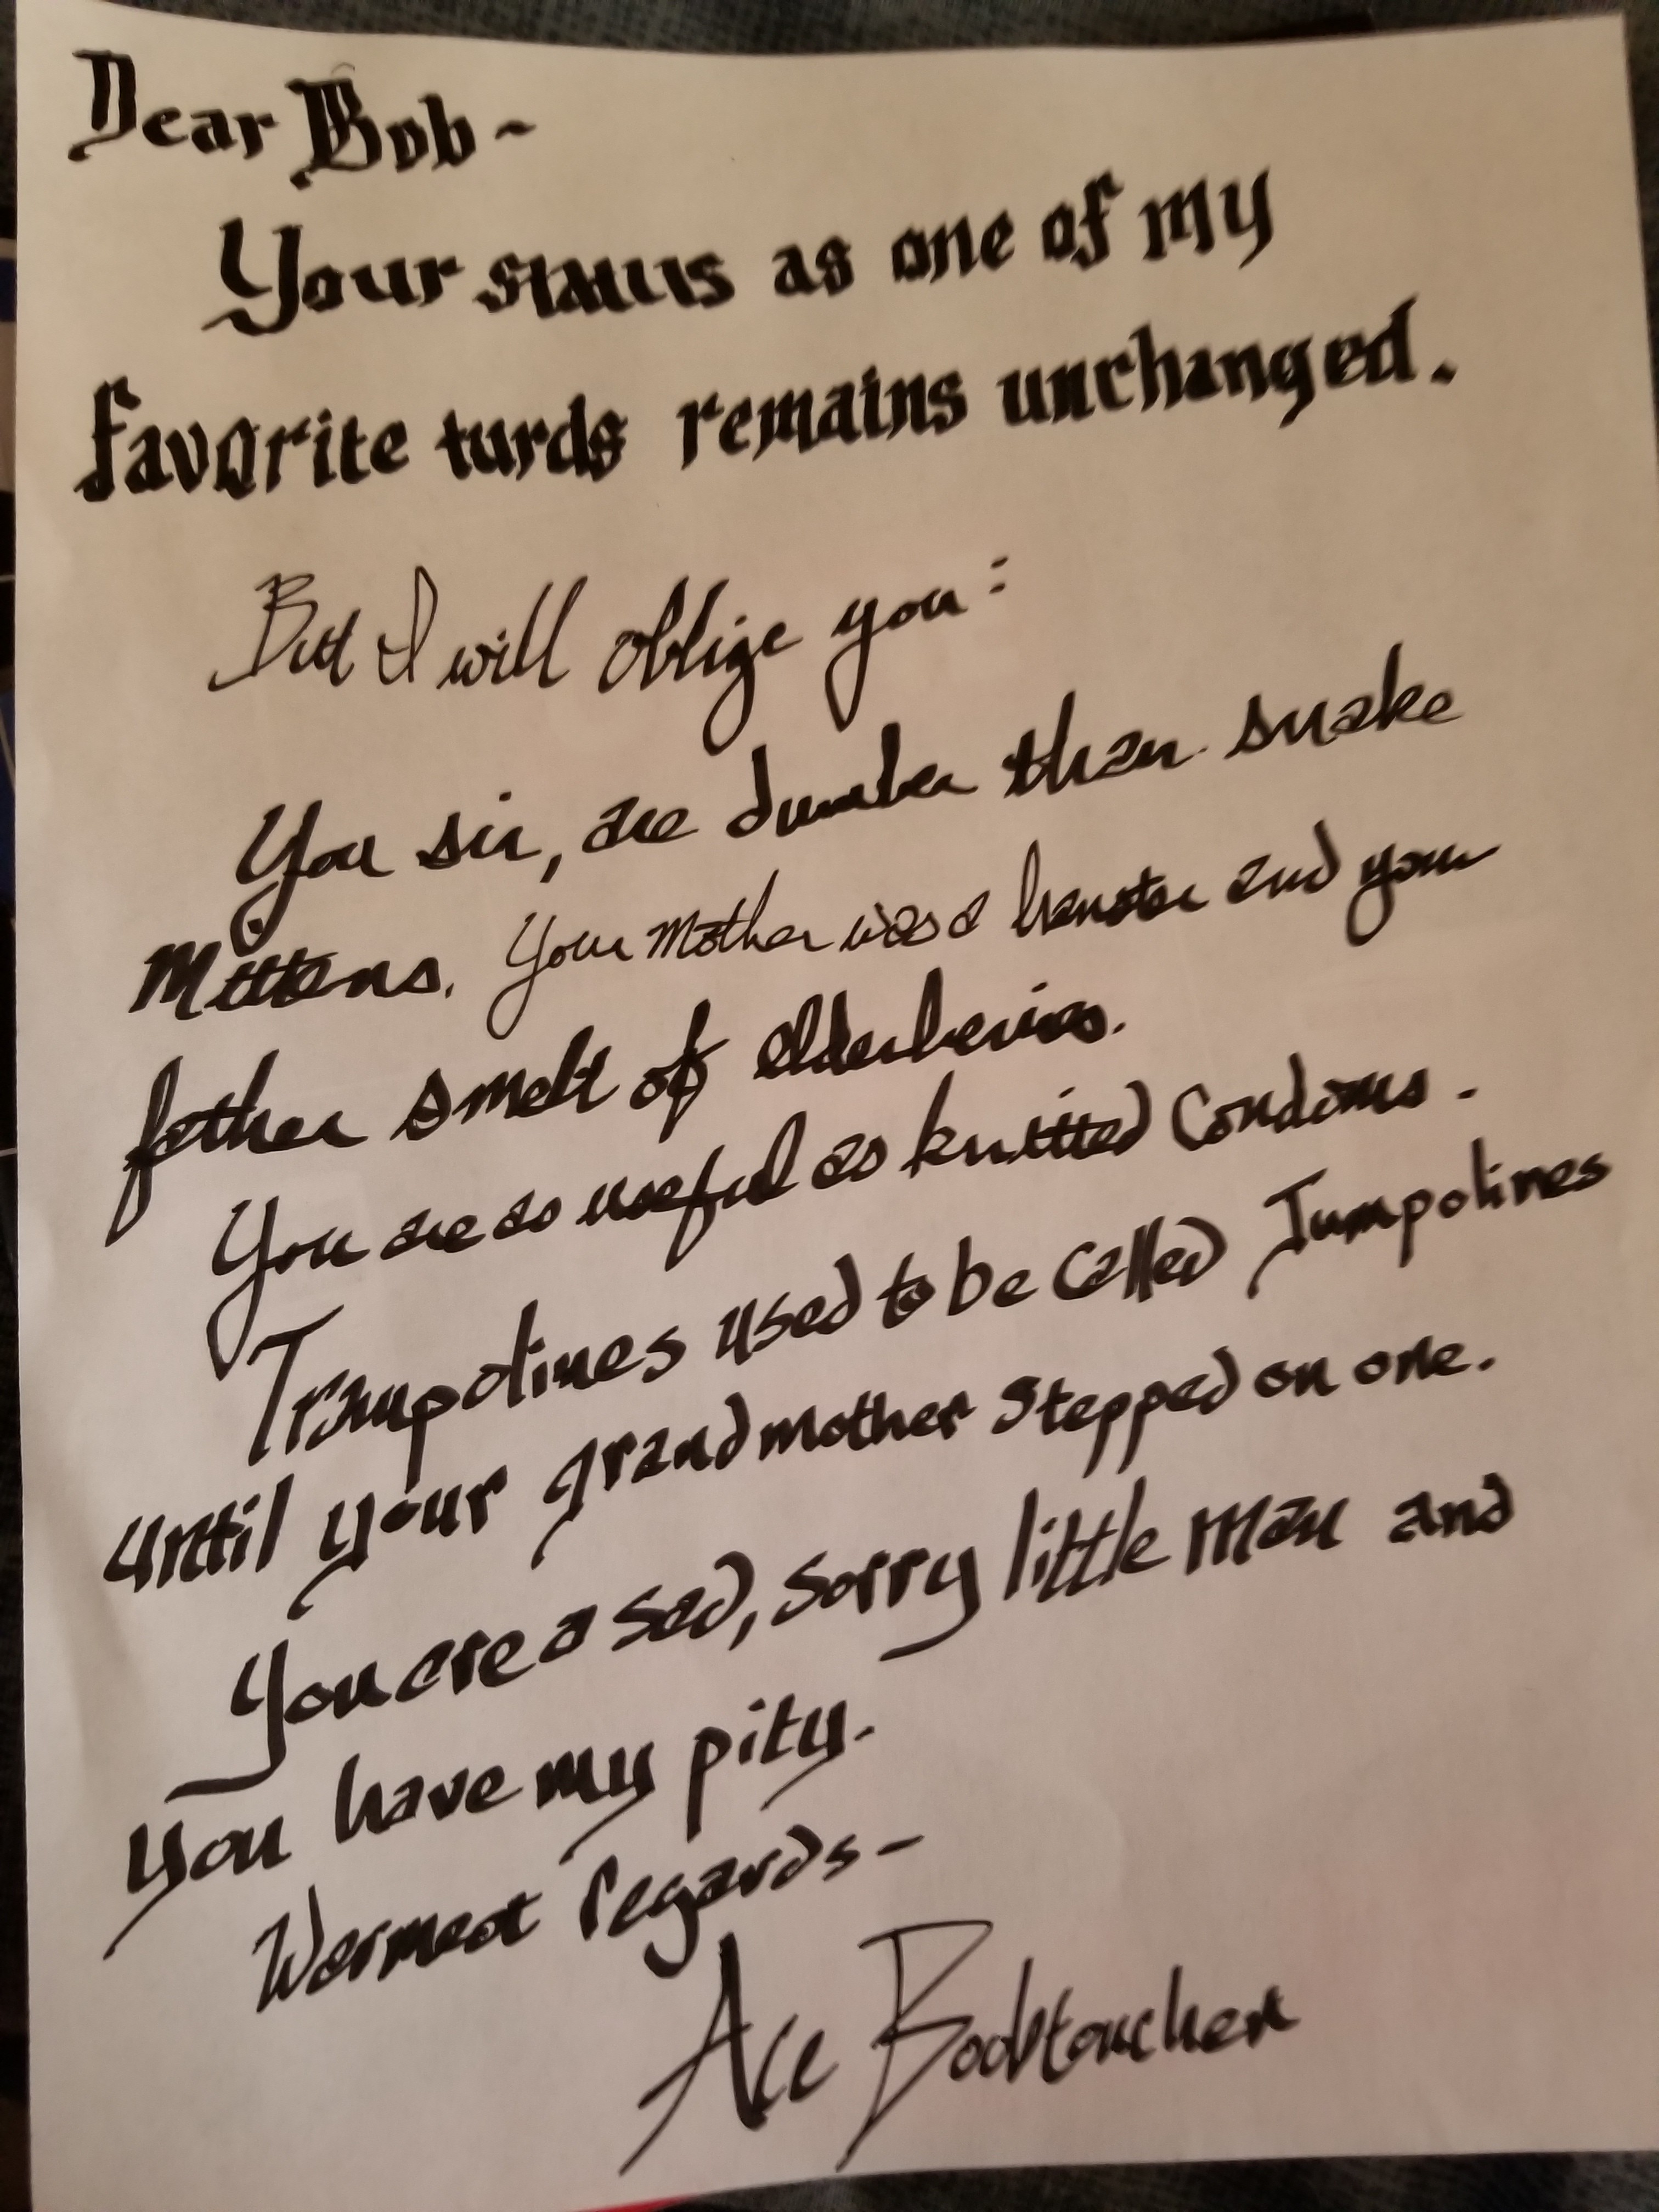 Dear Bob ~
Your status as one of my
favorite turds remains unchanged.
But I will oblige you:
You sir, are dumber than snake
Mittens. Your Mother was a hamster and your
father smelt of elderberries.
You are as useful as knitted Condoms.
Trampolines used to be called Jumpolines
until your grandmother stepped on one.
You are a sad, sorry little man and
you have my pity.
Warmest regards-
Ace Boobtoucher